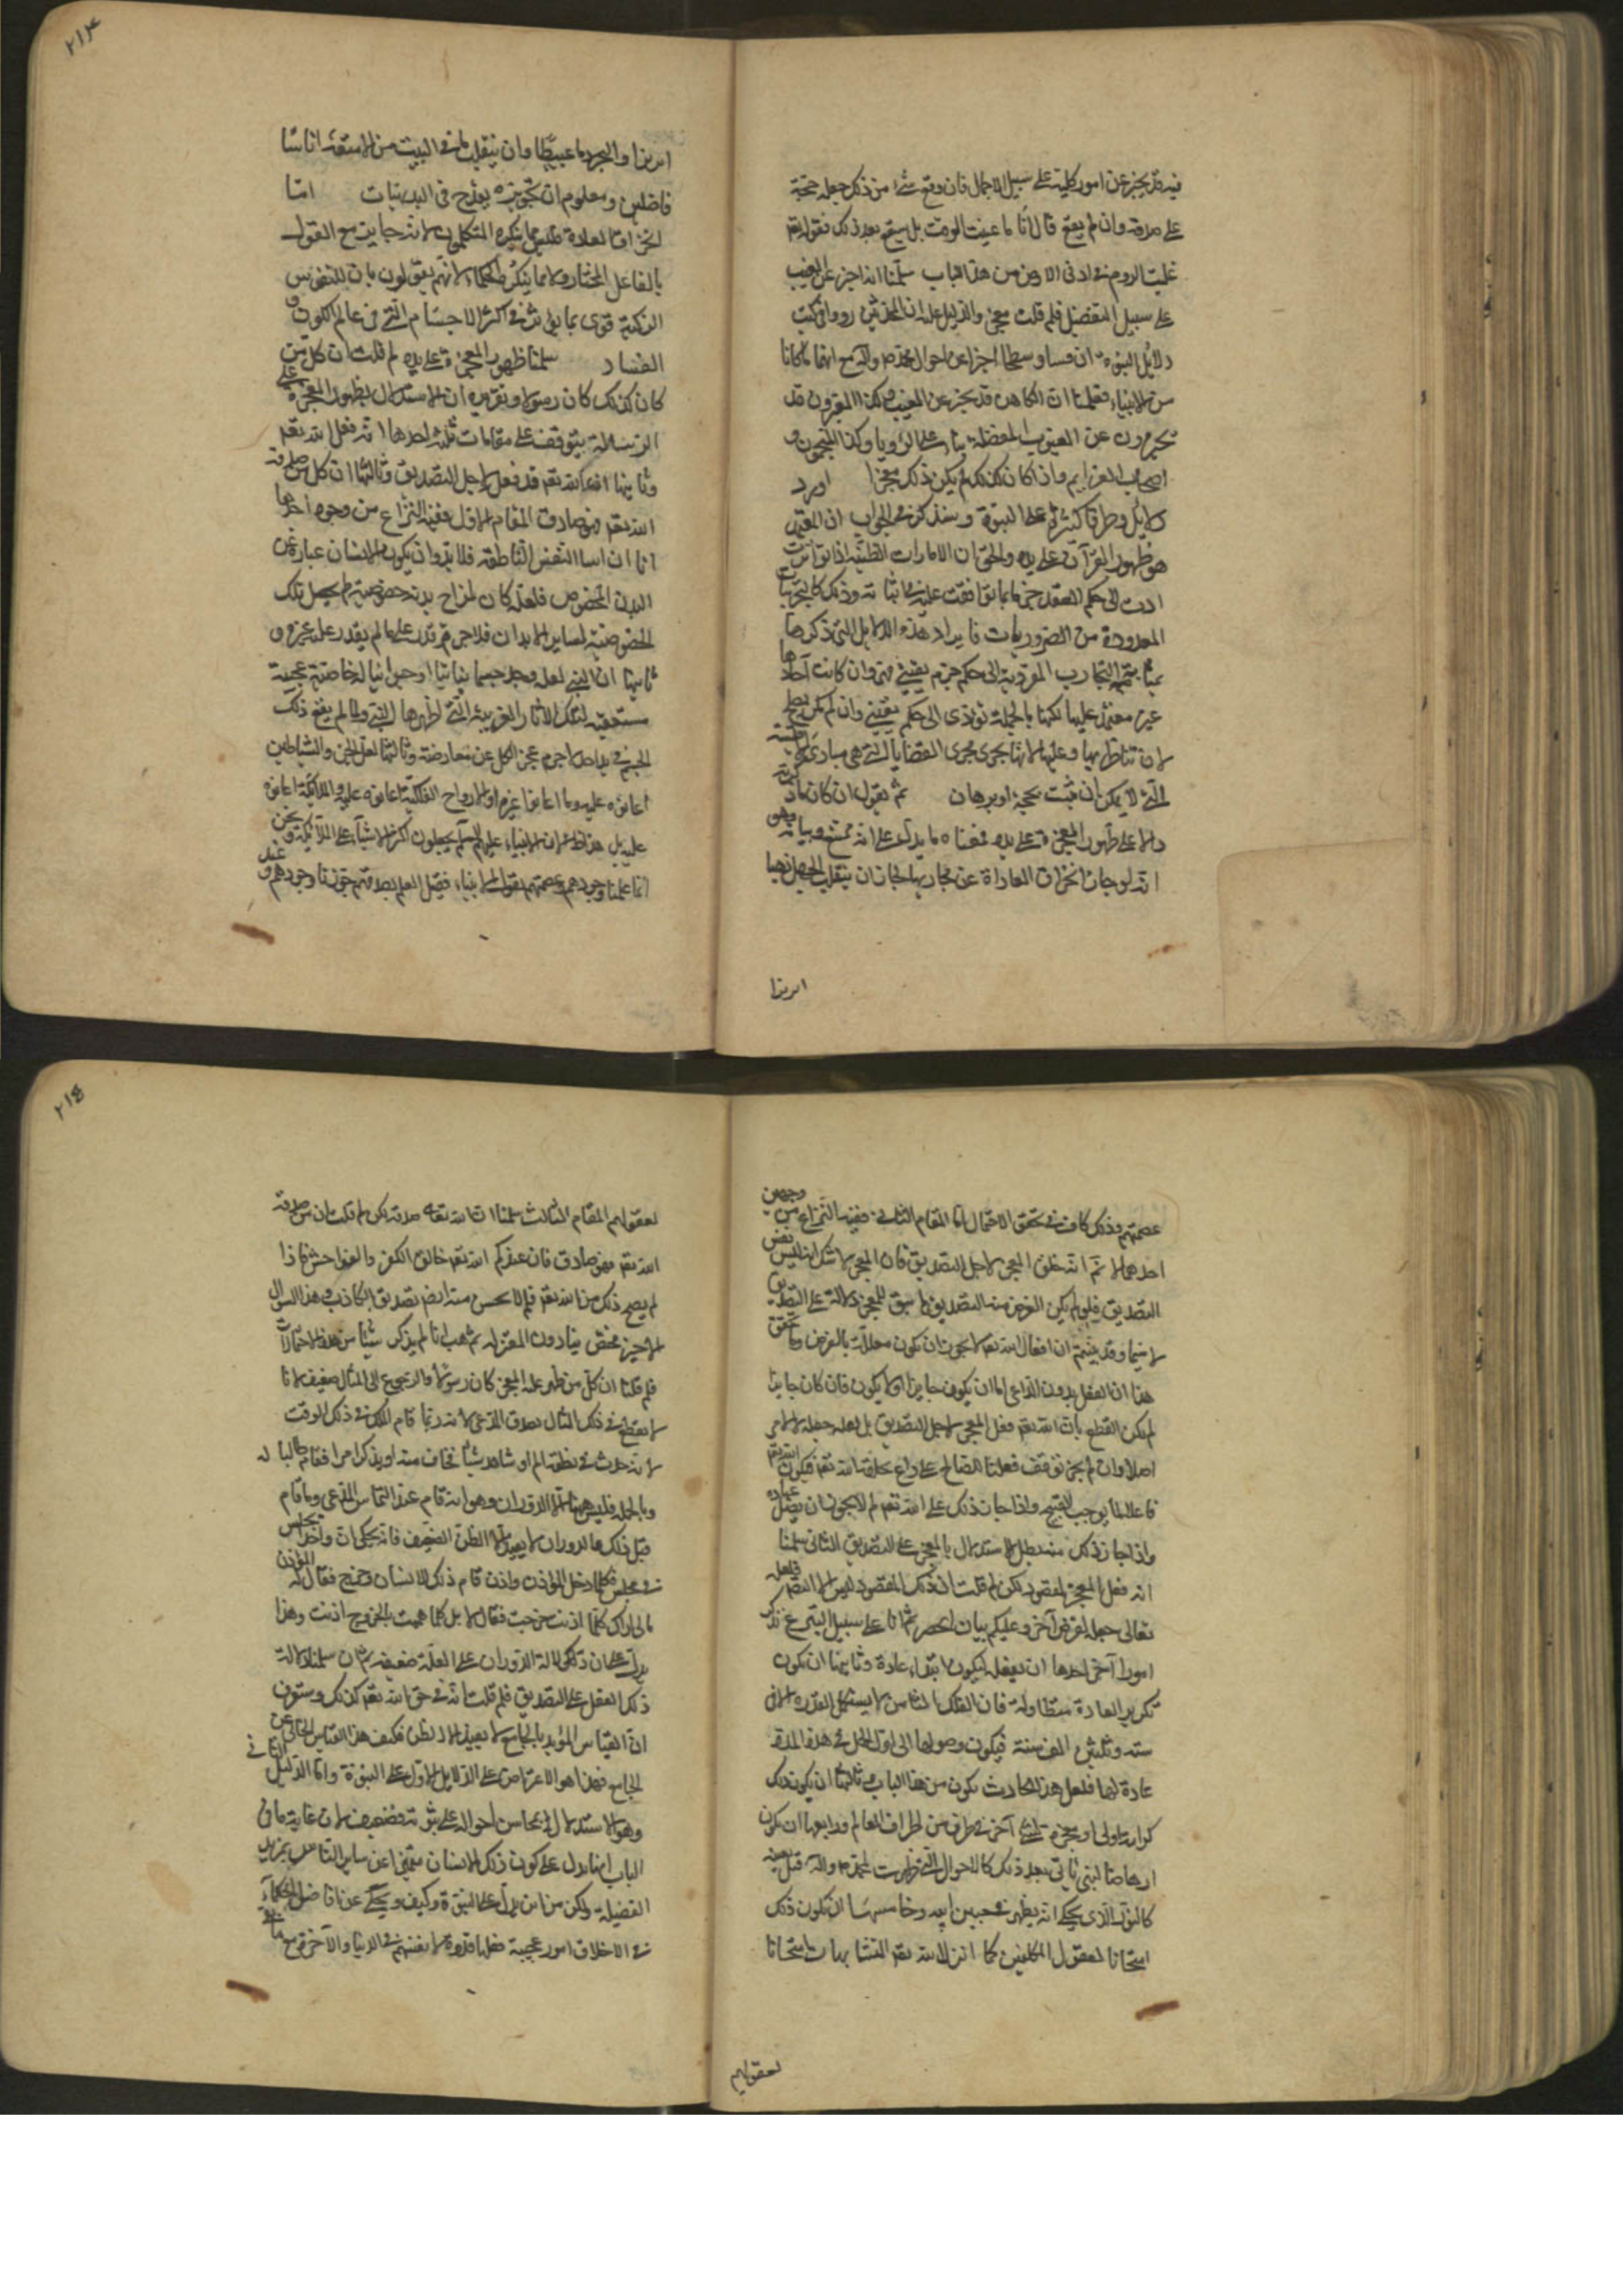 فيه قد يخبر عن امور كلية على سبيل الاجمال فان وقع شئ من ذلك جعله حجة
على صدقه وان لم يقع قال انا ما عينت الوقت بل سيقع بعد ذلك فقوله تعم
غلبت الروم في ادنى الارض من هذا الباب سلمنا انه اخبر عن الغيب
على سبيل التفصيل فلم قلت معجز والدليل عليه ان المحدثين رووا في كتب
دلايل النبوة ان قسا وسطيحا اخبرا عن احوال محمد ص وآله مع انهما ما كانا
من الانبياء فعلمنا ان الكاهن قد يخبر عن الغيب وكذا المعبرون قد
يخبرون عن الغيوب المفصلة بناء على الرؤيا وكذا المنجمون و
اصحاب العزايم واذا كان كذلك لم يكن ذلك معجزا اورد
دلايل وطرقا كثيرة على النبوة وسنذكر في الجواب ان المعتبر
هو ظهور القرآن على يده والحق ان الامارات الظنية اذا تواترت
ادت الى حكم العقد جزما بما توافقت عليه في اثباته وذلك كالتجربيات
المعدودة من الضروريات فايراد هذه الدلايل التي ذكرها
بمثابة التجارب المؤدية الى حكم جزم يقيني فهي وان كانت آحادها
غير معتمد عليها لكنها بالجملة تؤدى الى حكم يقيني وان لم يكن يصح
لان تناظر بها وعليها لانها تجرى مجرى القضايا التي هي مبادى الاقيسة
التي لا يمكن ان تثبت بحجة او برهان ثم يقول ان كان ما ذكرته
دالا على ظهور المعجزة على يده فمعناه ما يدل على انه ممتنع وبيانه وهو
انه لو جاز انخراق العادة عن مجاريها لجاز ان ينقلب الجبل ذهبا
ابريزا
ابريزا والبحر دما عبيطا وان ينقلب ما في البيت من الامتعة اناسا
فاضلين ومعلوم ان تجويزه يقدح في البديهيات اما
انخراق العادة فليس مما ينكره المتكلمون لانه جايز مع القول
بالفاعل المختار ولا مما ينكره الحكماء لانهم يقولون بان للنفوس
الزكية قوى بما يؤثر في اكثر الاجسام التي في عالم الكون و
الفساد سلمنا ظهور المعجزة على يده لم قلت ان كل من
كان كذلك كان رسولا وتقريره ان الاستدلال بظهور المعجزة على
الرسالة يتوقف على مقامات ثلثة احدها انه فعل الله تعم
وثانيها ان الله تعم قد فعل لاجل التصديق وثالثها ان كل من صدقه
الله تعم فهو صادق المقام الاول ففيه النزاع من وجوه احدها
انا ان اثبتنا النفس الناطقة فلا بد وان يكون الانسان عبارة عن
البدن المخصوص فلعله كان لمزاج بدنه خصوصية لم يحصل تلك
الخصوصية لساير الابدان فلاجرم قدر على ما لم يقدر عليه غيره و
ثانيها ان النبي لعله وجد جسما نباتيا او حيوانيا له خاصية عجيبة
مستعقبة لتلك الاثار الغريبة التي اظهرها النبي ولما لم يقع ذلك
الجسم في يد احد لاجرم عجز الكل عن معارضته وثالثها لعل الجن والشياطين
اعانوه عليه وما اعانوا غيره او الارواح الفلكية اعانوه عليه والملائكة اعانوه
عليه بل هذا اظهر لان الانبياء عليهم السلم يحيلون اكثر الاشياء على الملائكة ونحن
انما علمنا وجودهم وعصمتهم بقول الانبياء فقبل العلم بصدقهم جوزنا وجودهم وعند
عصمتهم وذلك كاف في تحقق الاحتمال اما المقام الثاني ففيه النزاع من وجهين
احدهما لا ثم انه خلق المعجز لاجل التصديق فان المعجز لا شك انه ليس نفس
التصديق فلو لم يكن الغرض منه التصديق لم تبق للمعجز دلالة على التصديق
لا سيما وقد بينتم ان افعال الله تعم لا يجوز ان يكون معللة بالغرض وتحقق
هذا ان الفعل بدون الداعى اما ان يكون جايزا او لا يكون فان كان جايزا
لم يكن القطع بان الله تعم فعل المعجز لاجل التصديق بل لعله جعله لا لامر
اصلا وان لم يجز توقف فعلنا الصالح على داع يخلقه الله تعم فيكون الله تعم
فاعلا لما يوجب القبيح واذا جاز ذلك على الله تعم لم لا يجوز ان يضل عباده
واذا جاز ذلك منه بطل الاستدلال بالمعجز على التصديق الثاني سلمنا
انه فعل المعجز لمقصود لكن لم قلت ان ذلك المقصود ليس الا التصديق فلعله
تعالى جعله لغرض آخر وعليكم بيان الحصر ثم انا على سبيل التبرع نذكر
امورا آخر احدها ان يفعله ليكون ابتداء عادة وثانيها ان يكون
تكرير العادة متطاولة فان الفلك الثامن لا يستكمل الدورة الا في
ستة وثلثين الف سنة فيكون وصولها الى اول الحمل في هذه المدة
عادة لها فلعل هذا الحادث يكون من هذا الباب وثالثها ان يكون ذلك
كرامة لولى او معجزة لنبي آخر في طرف من اطراف العالم ورابعها ان يكون
ارهاصا لنبي يأتي بعد ذلك كالاحوال التي ظهرت لمحمد ص وآله قبل بعثه
كالنور الذي يحكى انه يظهر في جبين ابيه وخامسها ان يكون ذلك
امتحانا لعقول المكلفين كما انزل الله تعم المتشابهات امتحانا
لعقولهم
لعقولهم المقام الثالث سلمنا ان الله تعالى صدقه لكن لم قلت ان من صدقه
الله تعم فهو صادق فان عندكم الله تعم خالق الكفر والفواحش فاذا
لم يقبح ذلك من الله تعم فلم لا يحسن منه ايضم تصديق الكاذب وهذا السؤال
لا يخص منا دون المعتزلة ثم هب انا لم نذكر شيئا من هذه الاحتمالات
فلم قلتا ان كل من ظهر عليه المعجز كان رسولا والرجوع الى المثال ضعيف لانا
لا نقطع في ذلك المثال بصدق المدعى لانه ربما قام الملك في ذلك الوقت
لانه حدث في بطنه الم او شاهد شيئا فخاف منه او يذكر امرا فقام طالبا له
وبالجملة فليس هناك الا الدوران وهو انه قام عند التماس المدعى وما قام
قبل ذلك والدوران لا يفيد الا الظن الضعيف فانه يحكى ان واحدا يجلس
في مجلس فكلما دخل المؤذن واذن قام ذلك الانسان وخرج فقال له المؤذن
مالي اراك كلما اذنت خرجت فقال لا بل كلما هممت بالخروج اذنت وهذا
يدل على ان دلالة الدوران على العلة ضعيفة ثم ان سلمنا دلالة
ذلك الفعل على التصديق فلم قلت انه في حق الله تعم كذلك وستعرف
ان القياس المؤيد بالجامع لا يفيد الا الظن فكيف هذا القياس الخالى عن
الجامع فهذا هو الاعتراض على الدلايل الاول على النبوة واما الدليل الثاني
وهو الاستدلال بمحاسن احواله على نبوته فضعيف لان غاية ما في
الباب انها تدل على كون ذلك الانسان متميزا عن ساير الناس بمزيد
الفضيلة ولكن من اين يدل على النبوة وكيف ويحكى عن افاضل الحكماء
في الاخلاق امور عجيبة جعلها قدوة لانفسهم في الدنيا والآخرة مع ما